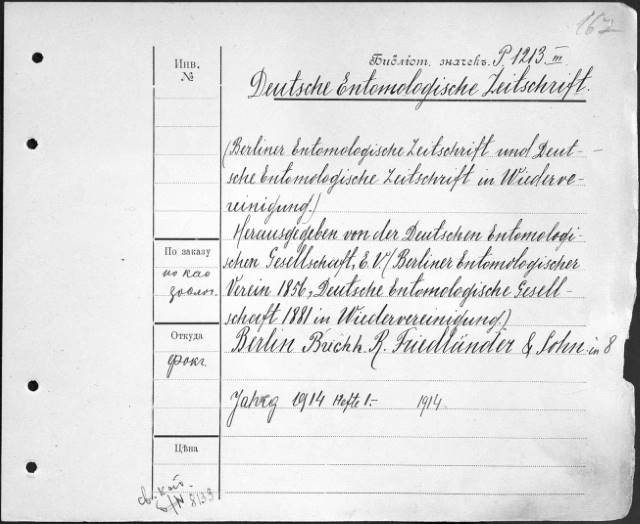 162
Инв.
№
Библіот. значекъ. P. 1213 III
Deutsche Entomologische Zeitschrift.
(Berliner Entomologische Zeitschrift und Deut-
sche Entomologische Zeitschrift in Wiederve-
reinigung.)
Herausgegeben von der Deutschen Entomologi-
schen Gesellschaft, E. V. (Berliner Entomologischer
Verein 1856, Deutsche Entomologische Gesell-
schaft 1881 in Wiedervereinigung.)
По заказу
по каб
зоолог.
Berlin Buchh. R. Friedländer & Sohn in 8
Откуда
фокг.
Jahrg 1914 Hefte 1.- 1914.
Цѣна
8133